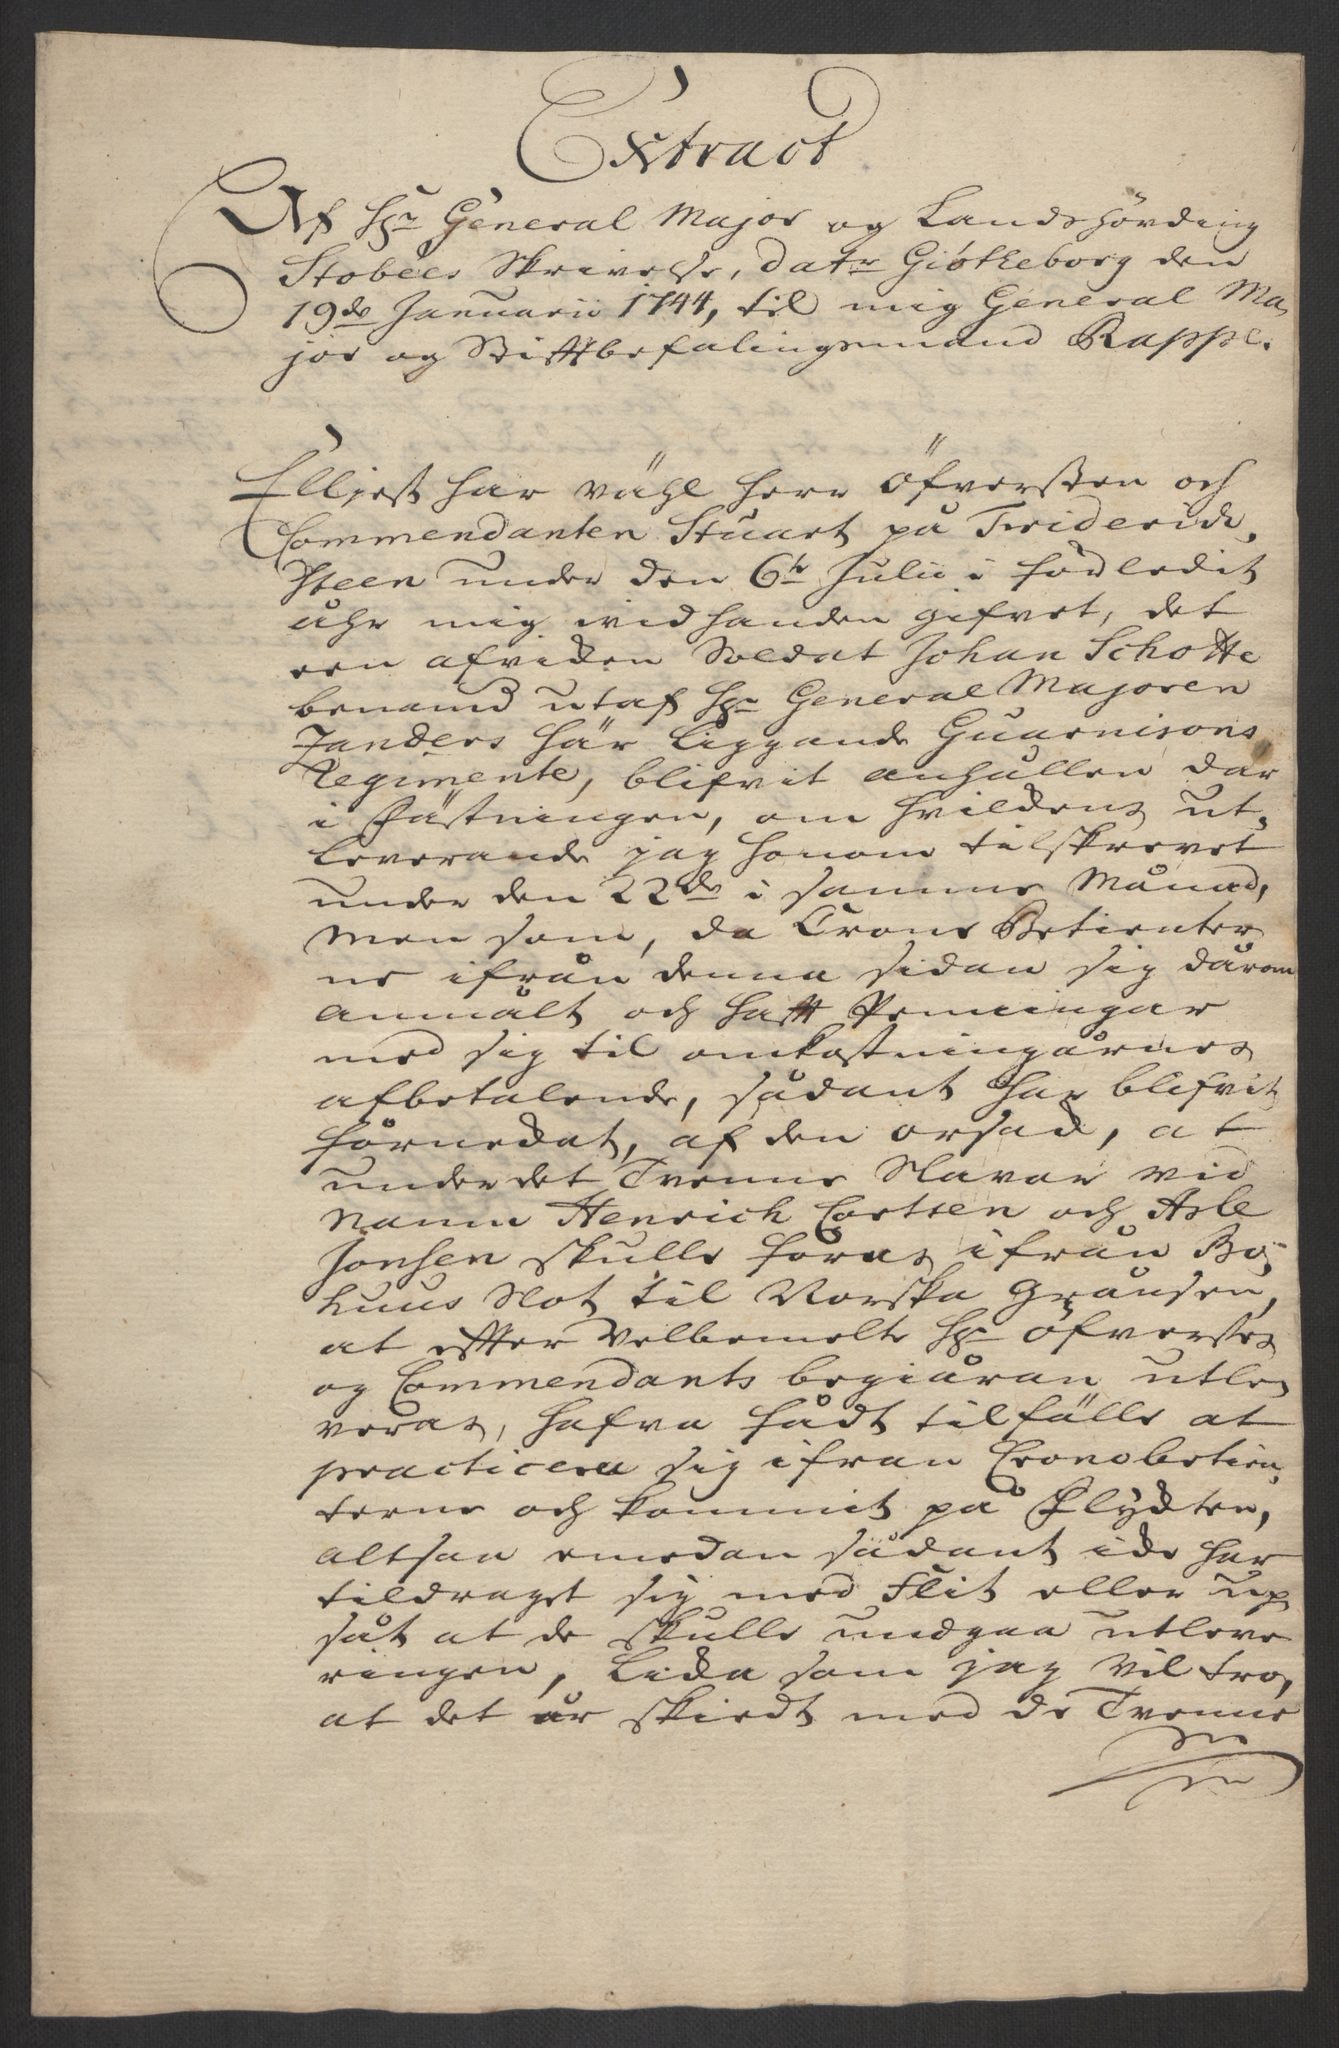 Extract
Af Hr General Major og Landshövding
Stobées Skrivelse, datr Giötheborg den
19de Januarii 1744, til mig General Ma-
jor og Stiftbefalingsmand Rappe.
Elljest har vähl Herr Öfversten och
Commendanten Stuart på Friderich-
steen under den 6te Julii i förledit
åhr mig vid handen gifvet, det
een afviken Soldat Johan Schotte
benamd utaf Hr General Majoren
Zanders här liggande Guarnisons
Regimente, blifvit anhållen där
i Fästningen, om hvilkens ut-
leverande jag honom tilskrevet
under den 22de i samme Månad,
men som, da Crono Betienter
ne ifrån denna sidan sig därom
anmält och haft Penningar
med sig til omkostningarnes
afbetalende, sådant har blifvit
förnekat, af den orsak, at
under det Tvenne Slavar vid
Namn Henrich Cortsen och Asle
Jonsen skulle föras ifrån Bo-
huus Slot til Norska Gränsen,
at efter Velbemelte Hr öfverstes
og Commendants begiäran utle-
veras, hafva fådt tilfälle at
practicera sig ifran Cronobetien-
terne och kommit på Flydten,
altsaa emedan sådant icke har
tildraget sig med Flit eller up-
såt at de skulle undgaa utleve
ringen, Lika som jag vil tro,
at det är skiedt med de Tvenne